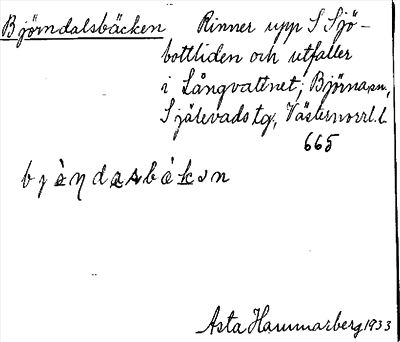 Björndalsbäcken Rinner upp S Sjö-
bottliden och utfaller
i Långvattnet; Björna sn,
Själevads tg, Västernorrl. l.
665
Asta Hammarberg 1933